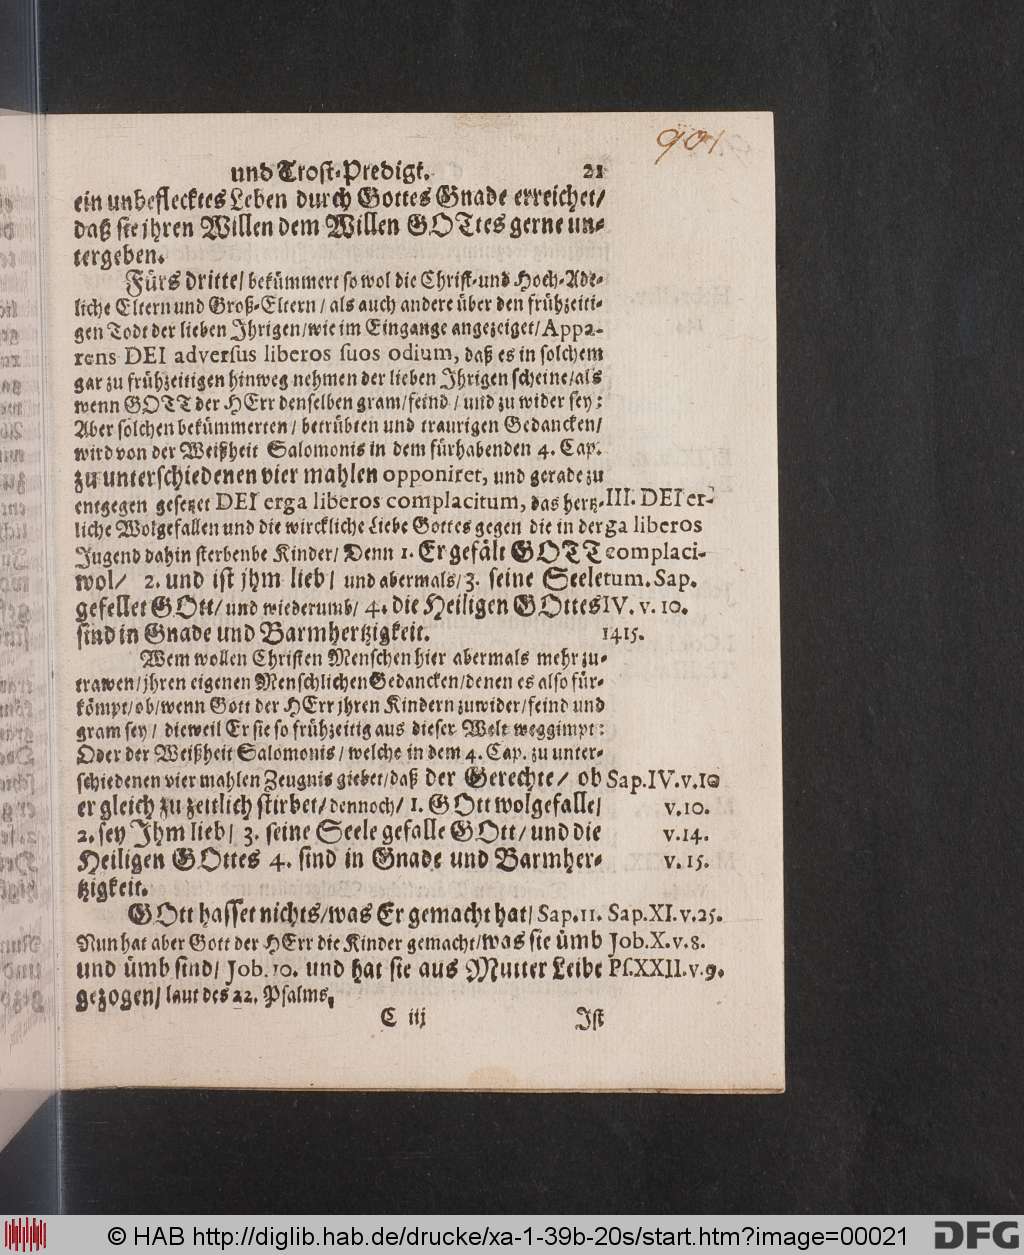 901
und Trost-Predigt. 21
ein unbeflecktes Leben durch Gottes Gnade erreichet/
daß sie jhren Willen dem Willen GOTtes gerne un-
tergeben.
Fürs dritte/ bekümmert so wol die Christ-und Hoch-Ade-
liche Eltern und Groß-Eltern / als auch andere über den frühzeiti-
gen Todt der lieben Jhrigen/wie im Eingange angezeiget/ Appa-
rens DEI adversus liberos suos odium, daß es in solchem
gar zu frühzeitigen hinweg nehmen der lieben Jhrigen scheine/als
wenn GOTT der HErr denselben gram/feind / und zu wider sey:
Aber solchen bekümmerten/ betrübten und traurigen Gedancken/
wird von der Weißheit Salomonis in dem fürhabenden 4. Cap.
zu unterschiedenen vier mahlen opponiret, und gerade zu
entgegen gesetzet DEI erga liberos complacitum, das hertz-
liche Wolgefallen und die wirckliche Liebe Gottes gegen die in der
Jugend dahin sterbenbe Kinder/ Denn 1. Er gefält GOTT
wol/ 2. und ist jhm lieb/ und abermals/ 3. seine Seele
gefellet GOtt/ und wiederumb/ 4. die Heiligen GOttes
sind in Gnade und Barmhertzigkeit.
III. DEI er-
ga liberos
complaci-
tum. Sap.
IV. v. 10.
1415.
Wem wollen Christen Menschen hier abermals mehr zu-
trawen/jhren eigenen Menschlichen Gedancken/denen es also für-
kömpt/ob/wenn Gott der HErr jhren Kindern zuwider/feind und
gram sey/ dieweil Er sie so frühzeitig aus dieser Welt weggimpt:
Oder der Weißheit Salomonis/ welche in dem 4. Cap. zu unter-
schiedenen vier mahlen Zeugnis giebet/daß der Gerechte/ ob
er gleich zu zeitlich stirbet/dennoch/ 1. GOtt wolgefalle/
2. sey Jhm lieb/ 3. seine Seele gefalle GOtt/ und die
Heiligen GOttes 4. sind in Gnade und Barmher-
tzigkeit.
Sap.IV.v.10
v.10.
v.14.
v.15.
GOtt hasset nichts/was Er gemacht hat/ Sap.11.
Nun hat aber Gott der HErr die Kinder gemacht/was sie ümb
und ümb sind/ Job.10. und hat sie aus Mutter Leibe
gezogen/ laut des 22. Psalms.
Sap.XI.v.25.
Job.X.v.8.
Ps.XXII.v.9.
C iij Jst
© HAB http://diglib.hab.de/drucke/xa-1-39b-20s/start.htm?image=00021 DFG